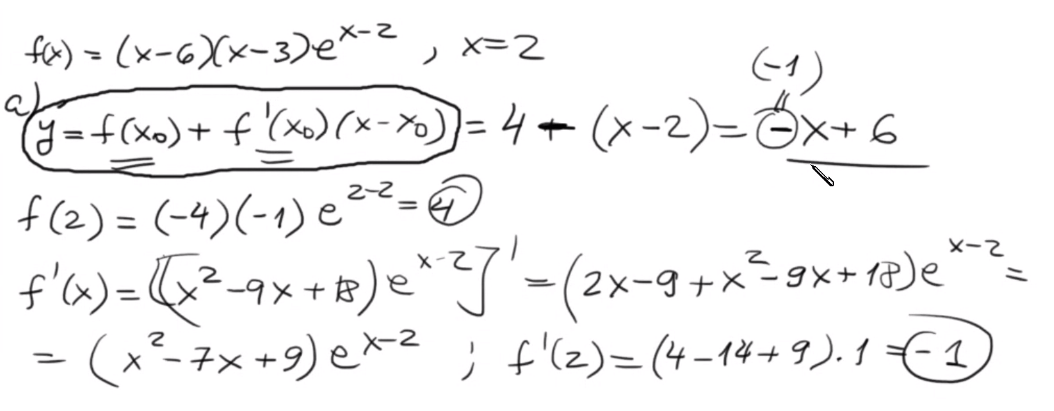 f(x) = (x-6)(x-3)e^{x-2} , x=2
(-1)
a) y = f(x₀) + f'(x₀)(x-x₀) = 4 - (x-2) = -x+6
f(2) = (-4)(-1) e^{2-2} = 4
f'(x) = [(x²-9x+18)e^{x-2}]' = (2x-9+x²-9x+18)e^{x-2} =
= (x²-7x+9)e^{x-2} ; f'(2) = (4-14+9).1 = -1